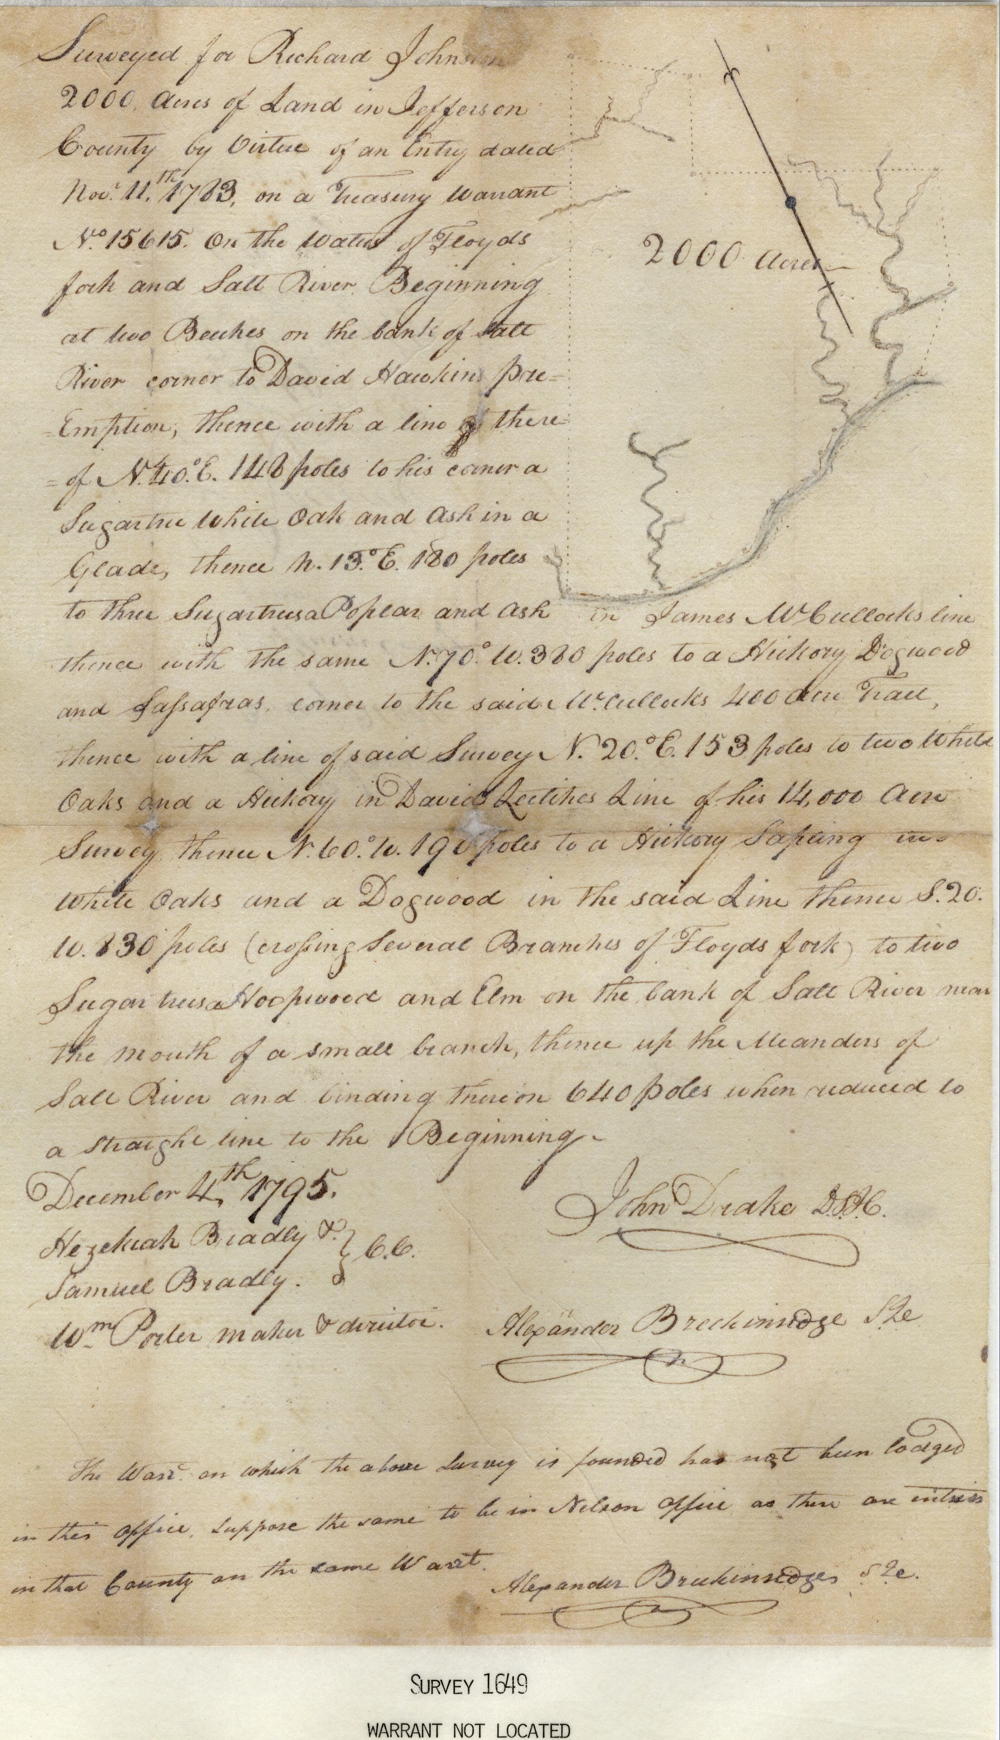 Surveyed for Richard Johnson
2000 Acres of Land in Jefferson
County by Virtue of an Entry dated
Novr. 11.th 1783, on a Treasury Warrant
No. 15615. On the Waters of Floyds
fork and Salt River Beginning
at two Beeches on the bank of Salt
River corner to David Hawkins pre=
=Emption, thence with a line there=
=of N.40.°E. 148 poles to his corner a
Sugartree White Oak and Ash in a
Glade, thence N. 13.°E. 180 poles
to three Sugartrees a Poplar and Ash in James McCullocks line
thence with the same N.70.°W. 380 poles to a Hickory Dogwood
and Sassafras corner to the said McCullocks 400 Acre Tract,
thence with a line of said Survey N. 20.°E. 153 poles to two White
Oaks and a Hickory in David Leitches Line of his 14,000 Acre
Survey thence N. 60.°W. 190 poles to a Hickory Sapling two
White Oaks and a Dogwood in the said Line thence S. 20.
W. 830 poles (crossing Several Branches of Floyds fork) to two
Sugartrees a Hoopwood and Elm on the bank of Salt River near
the mouth of a small branch, thence up the Meanders of
Salt River and binding thereon 640 poles when reduced to
a straight line to the Beginning.
2000 Acres
December 4.th 1795.
Hezekiah Bradly &
Samuel Bradly. } C.C.
Wm Porter maker & director.
John Drake D.S.J.C.
Alexander Breckinridge
The Warrt. on which the above Survey is founded has not been lodged
in this Office, suppose the same to be in Nelson Office as there are entries
in that County on the same Warrt.
Alexander Breckinridge
SURVEY 1649
WARRANT NOT LOCATED